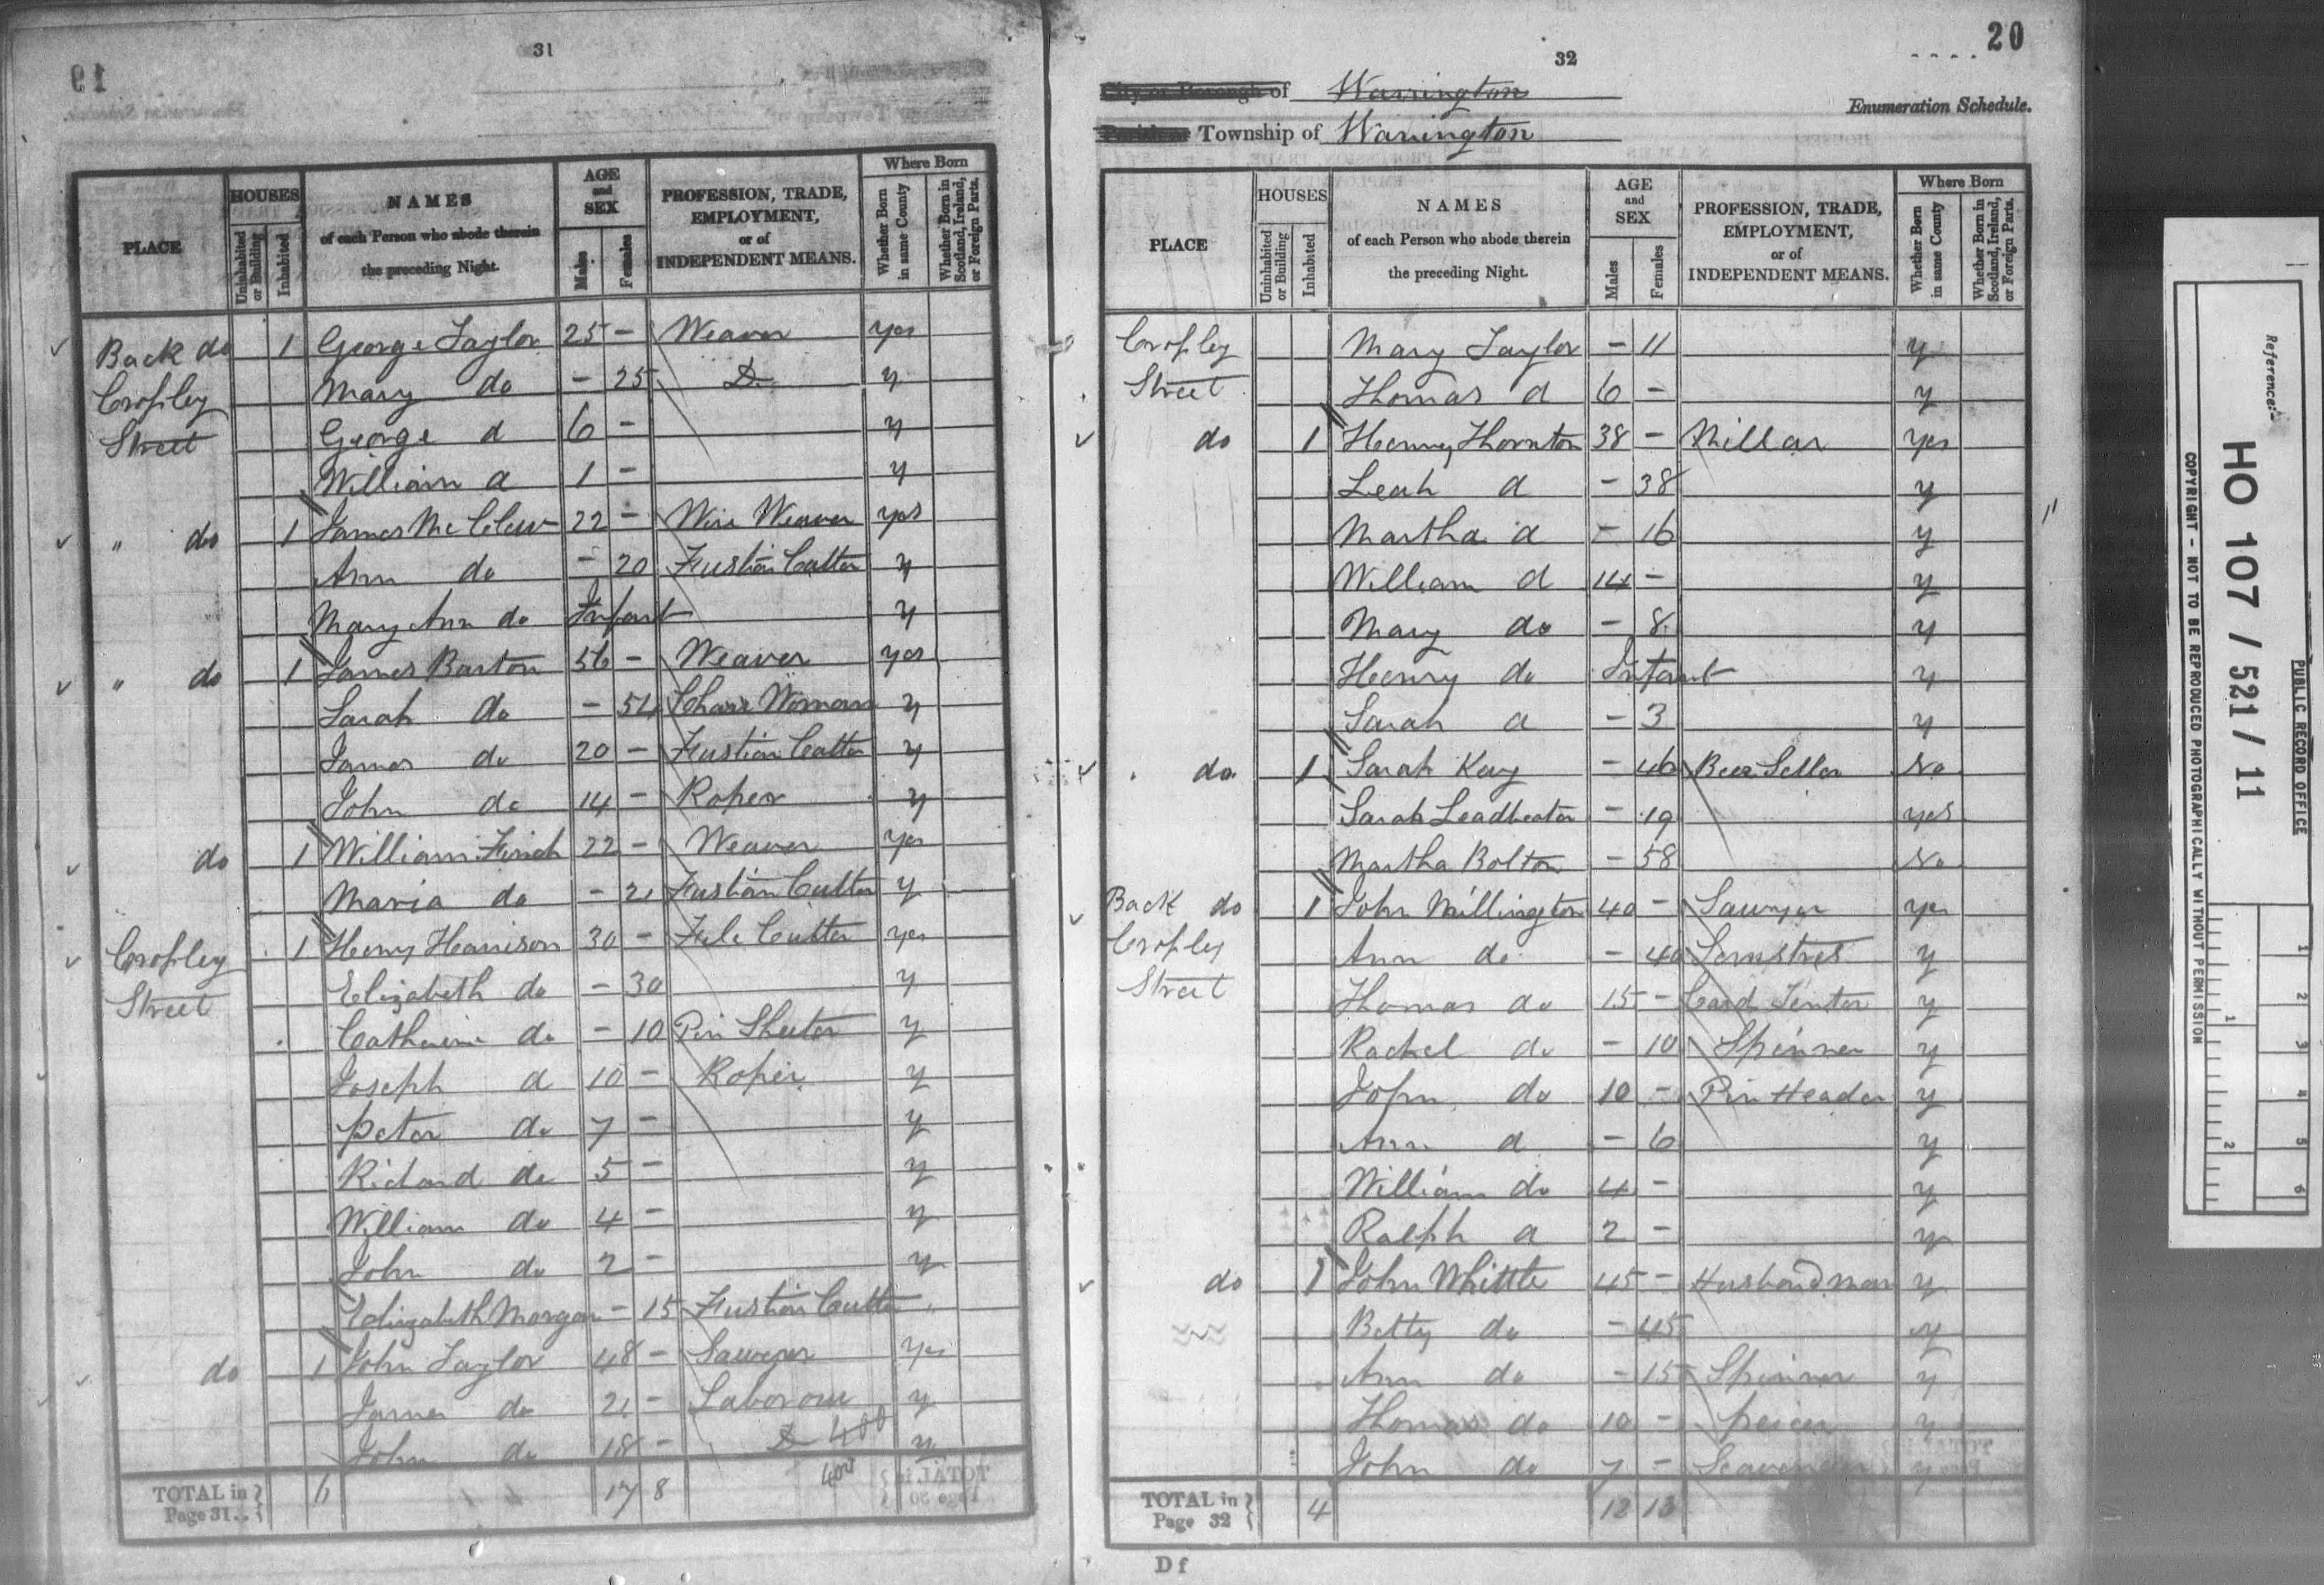 31
19
PLACE
HOUSES
Uninhabited or Building
Inhabited
NAMES
of each Person who abode therein
the preceding Night.
AGE
and
SEX
Males
Females
PROFESSION, TRADE,
EMPLOYMENT,
or of
INDEPENDENT MEANS.
Where Born
Whether Born in same County
Whether Born in Scotland, Ireland, or Foreign Parts.
Back do 1 George Taylor 25 - Weaver yes
Cropley Mary do - 25 Do y
Street George d 6 - y
William d 1 - y
" do 1 James Mc Clew 22 - Wire Weaver yes
Ann do - 20 Fustian Cutter y
Mary Ann do Infant y
" do 1 James Barton 56 - Weaver yes
Sarah do - 54 Chare Woman y
James do 20 - Fustian Cutter y
John do 14 - Roper y
do 1 William Finch 22 - Weaver yes
Maria do - 21 Fustian Cutter y
Cropley 1 Henry Harrison 30 - File Cutter yes
Street Elizabeth do - 30 y
Catherine do - 10 Pin Sheeter y
Joseph d 10 - Roper y
Peter do 7 - y
Richard do 5 - y
William do 4 - y
John do 2 - y
Elizabeth Morgan - 15 Fustian Cutter "
do 1 John Taylor 48 - Sawyer Yes
James do 21 - Laborour y
John do 18 - Do 400 y
TOTAL in Page 31.. 6 17 8 400
32
20
City or Borough of Warrington
Enumeration Schedule.
Parish or Township of Warrington
PLACE
HOUSES
Uninhabited or Building
Inhabited
NAMES
of each Person who abode therein
the preceding Night.
AGE
and
SEX
Males
Females
PROFESSION, TRADE,
EMPLOYMENT,
or of
INDEPENDENT MEANS.
Where Born
Whether Born in same County
Whether Born in Scotland, Ireland, or Foreign Parts.
Cropley Mary Taylor - 11 y
Street Thomas d 6 - y
do 1 Henry Thornton 38 - Millar yes
Leah d - 38 y
Martha d - 16 y
William d 14 - y
Mary do - 8 y
Henry do Infant y
Sarah d - 3 y
do 1 Sarah Kay - 46 Beer Seller No
Sarah Leadbeater - 19 yes
Martha Bolton - 58 No
Back do 1 John Millington 40 - Sawyer yes
Cropley Ann do - 40 Semstres y
Street Thomas do 15 - Card Tenter y
Rachel do - 10 Spinner y
John do 10 - Pin Header y
Ann d - 6 y
William do 4 - y
Ralph d 2 - y
do 1 John Whittle 45 - Husbandman y
Betty do - 45 y
Ann do - 15 Spinner y
Thomas do 10 - Peicer y
John do 7 - Scavenger y
TOTAL in Page 32 4 12 13
D f
Reference:-
HO 107 / 521 / 11
PUBLIC RECORD OFFICE
COPYRIGHT - NOT TO BE REPRODUCED PHOTOGRAPHICALLY WITHOUT PERMISSION
1 2 3 4 5 6
1 2